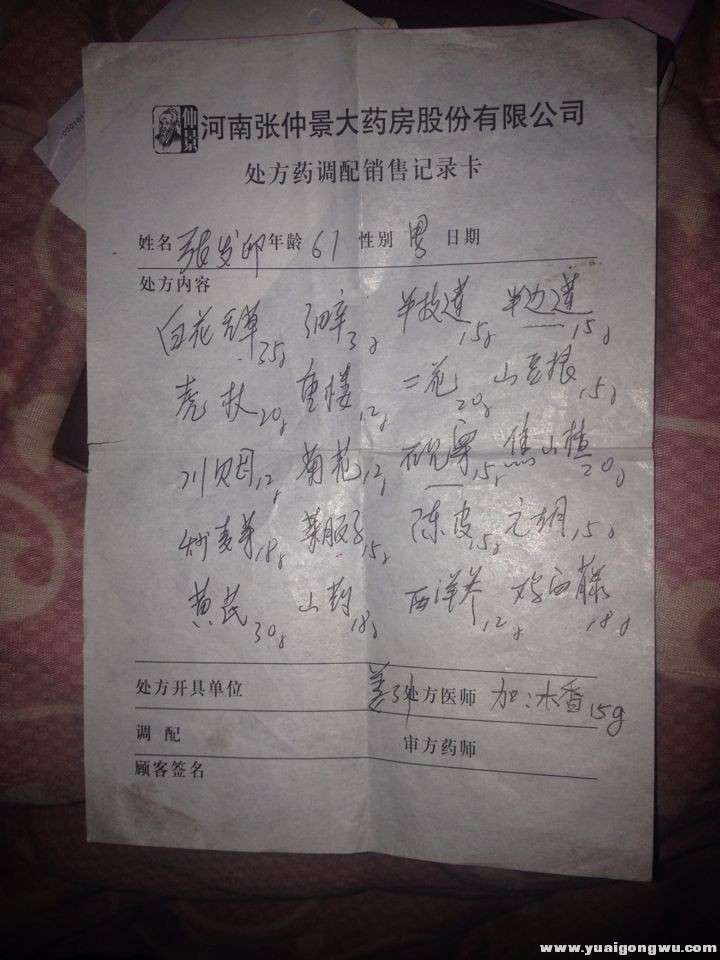 仲景 河南张仲景大药房股份有限公司
处方药调配销售记录卡
姓名 年龄 61 性别 男 日期
处方内容
白花 35g 细辛 3g 半枝莲 15g 半边莲 15g
虎杖 20g 重楼 12g 二花 20g 山豆根 15g
川贝母 12g 菊花 12g 15g 焦山楂 20g
炒麦芽 18g 莱服子 15g 陈皮 15g 元胡 15g
黄芪 30g 山药 18g 西洋参 12g 18g
处方开具单位 处方医师 加:木香 15g
调 配 审方药师
顾客签名
www.yuaigongwu.com